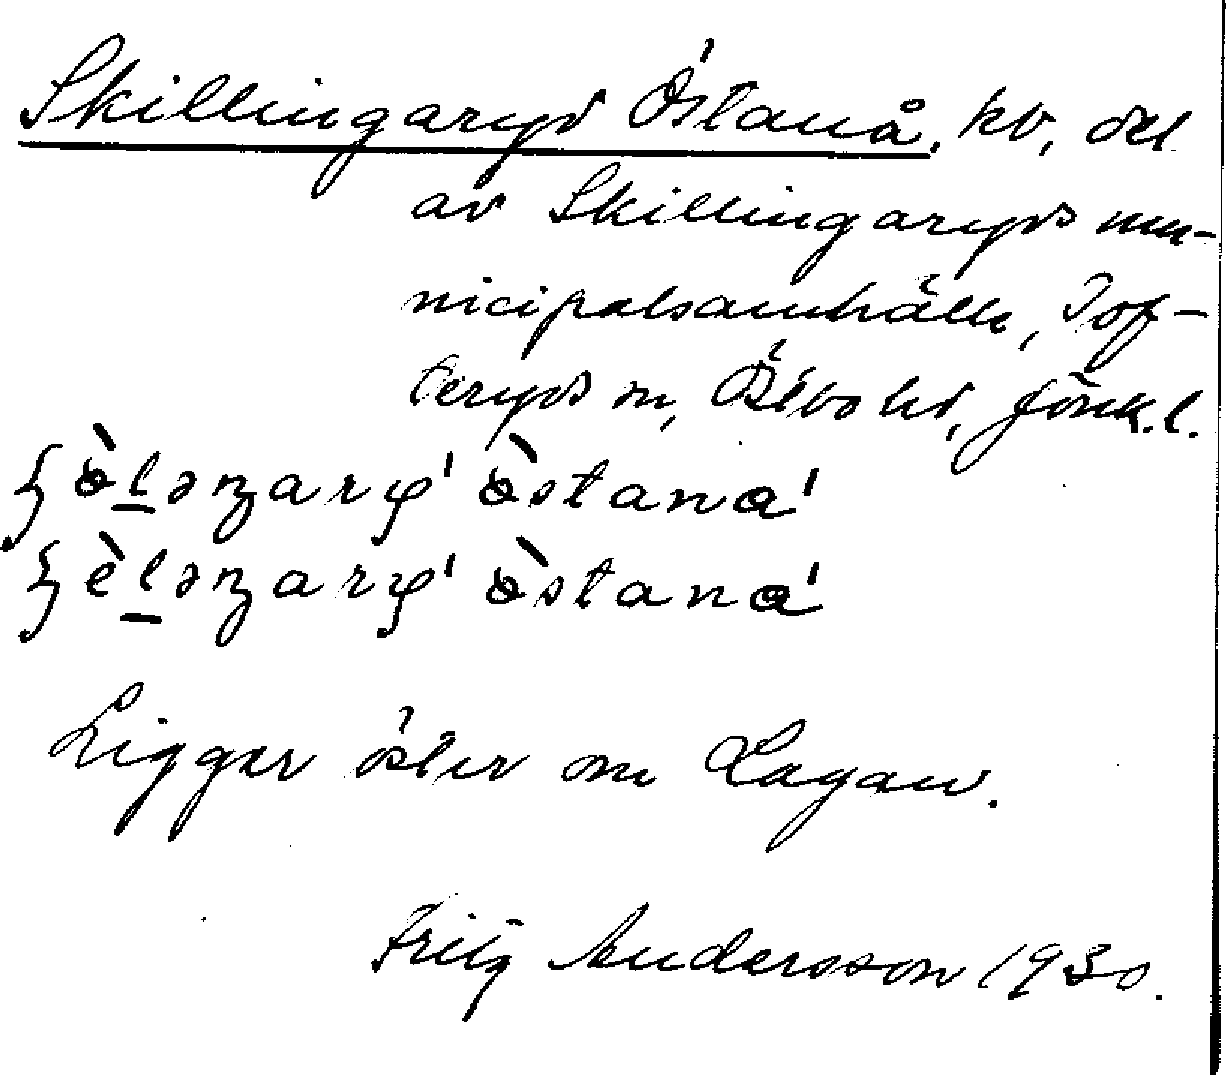 Skillingaryd Östanå, kv, del
av Skillingaryds mu-
nicipalsamhälle, Tof-
teryds sn, Östbo hd, Jönk.l.
östaná
östaná
Ligger öster om Lagan.
Fritz Andersson 1930.